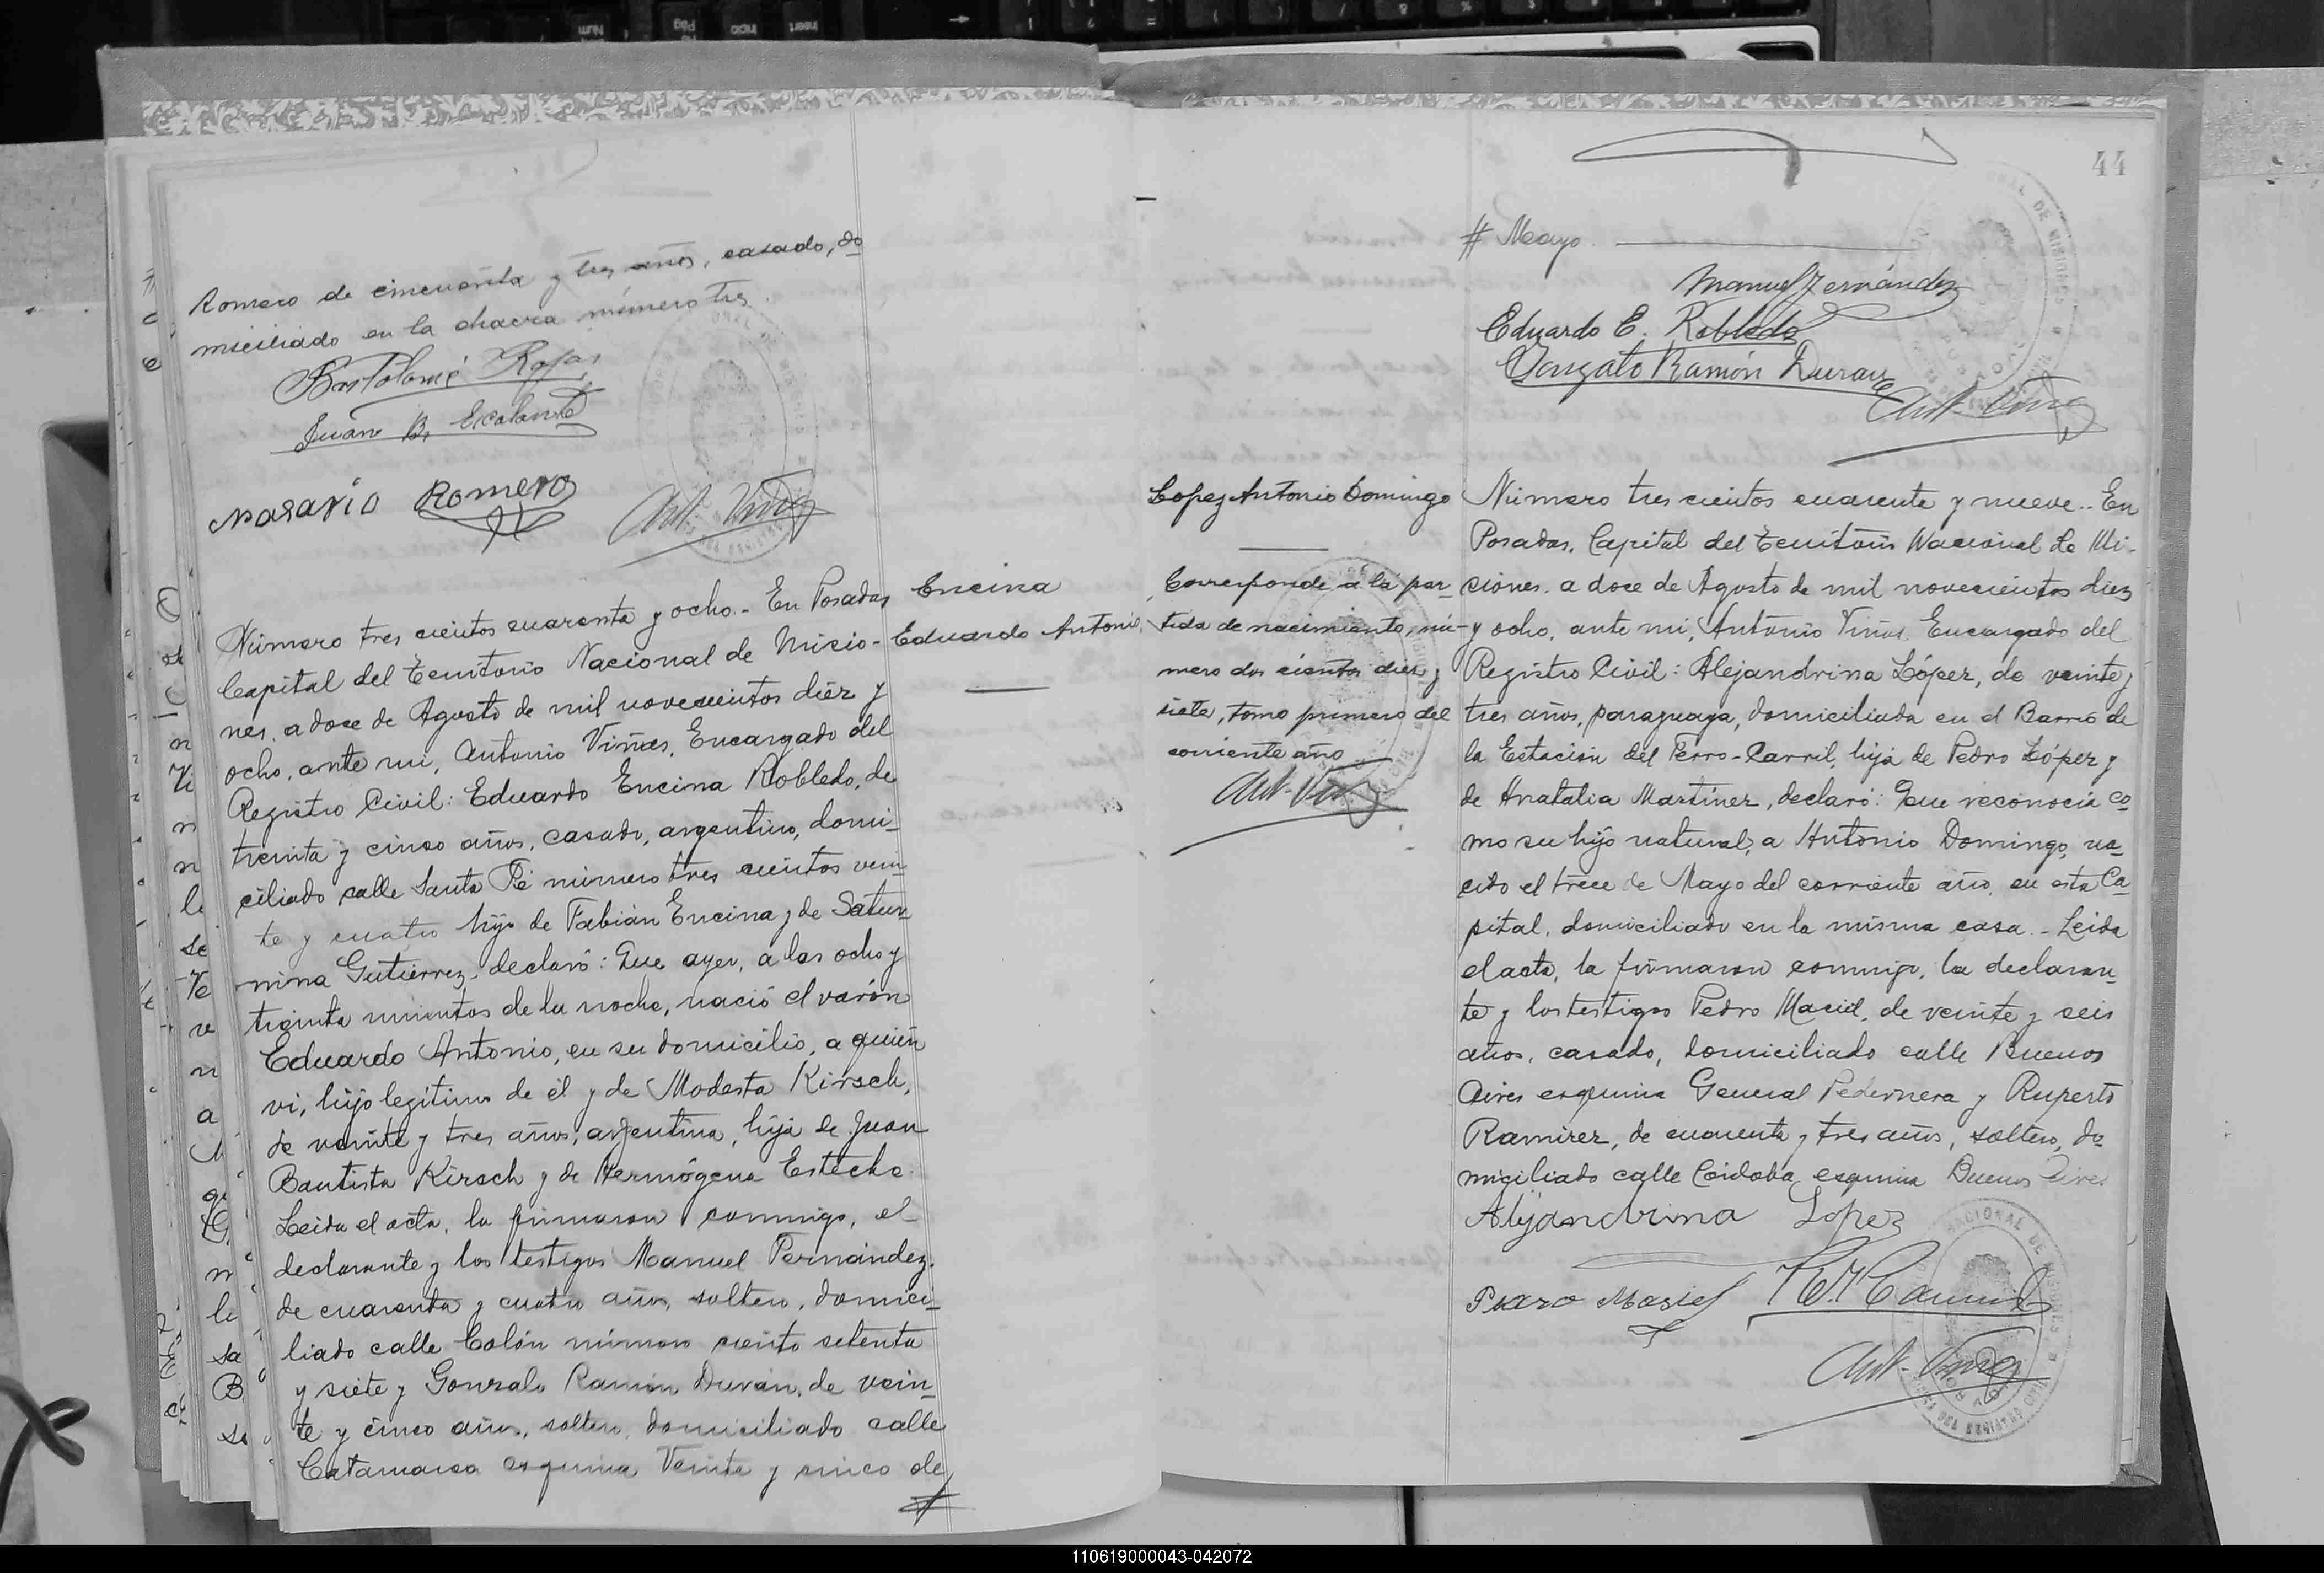 Romero de cincuenta y tres años, casado, do
miciliado en la chacra número tres.
Bartolomé Rojas
Juan B. Escalante
Nasario Romero
Ant. Viñas
Encina
Eduardo Antonio
Número tres cientos cuarenta y ocho.- En Posadas
Capital del Territorio Nacional de Misio-
nes, a doce de Agosto de mil novecientos diez y
ocho, ante mi, Antonio Viñas, Encargado del
Registro Civil: Eduardo Encina Robledo, de
treinta y cinco años, casado, argentino, domi-
ciliado calle Santa Fé número tres cientos vein
te y cuatro hijo de Fabián Encina y de Satur
nina Gutierrez, declaró: Que ayer, a las ocho y
treinta minutos de la noche, nació el varón
Eduardo Antonio, en su domicilio, a quien
vi, hijo legítimo de él y de Modesta Kirsch,
de veinte y tres años, argentina, hija de Juan
Bautista Kirsch y de Hermógena Esteche.
Leida el acta, la firmaron conmigo, el
declarante y los testigos Manuel Fernández,
de cuarenta y cuatro años, soltero, domici-
liado calle Colón número ciento setenta
y siete y Gonzalo Ramón Durán, de vein-
te y cinco años, soltero, domiciliado calle
Catamarca esquina Veinte y cinco de
#
44
# Mayo
Manuel Fernández
Eduardo E. Robledo
Gonzalo Ramón Duran
Ant. Viñas
Lopez Antonio Domingo
Corresponde a la par-
tida de nacimiento, nú-
mero dos cientos diez y
siete, tomo primero del
corriente año
Ant. Viñas
Número tres cientos cuarenta y nueve.- En
Posadas, Capital del Territorio Nacional de Mi-
siones, a doce de Agosto de mil novecientos diez
y ocho, ante mi, Antonio Viñas, Encargado del
Registro Civil: Alejandrina López, de veinte y
tres años, paraguaya, domiciliada en el Barrio de
la Estación del Ferro-Carril, hija de Pedro López y
de Anatalia Martínez, declaró: Que reconocía co
mo su hijo natural, a Antonio Domingo, na-
cido el trece de Mayo del corriente año, en esta Ca
pital, domiciliado en la misma casa.- Leida
el acta, la firmaron conmigo, la declaran-
te y los testigos Pedro Maciel, de veinte y seis
años, casado, domiciliado calle Buenos
Aires esquina General Pedernera y Ruperto
Ramírez, de cuarenta y tres años, soltero, do
miciliado calle Córdoba esquina Buenos Aires
Alejandrina Lopez
Pedro Masiel
Ant. Viñas
110619000043-042072